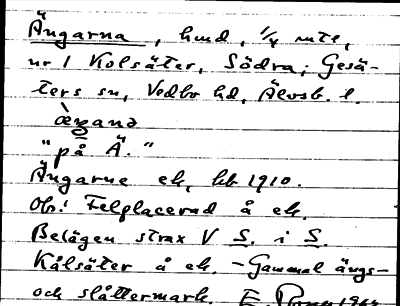 Ängarna, hmd, 1/4 mtl,
nr 1 Kolsäter, Södra; Gesä-
ters sn, Vedbo hd, Älvsb. l.
æŋana
"på Ä."
Ängarne ek, hb 1910.
Obs! Felplacerad å ek.
Belägen strax V S. i S.
Kålsäter å ek. - Gammal ängs-
och slåttermark. E.